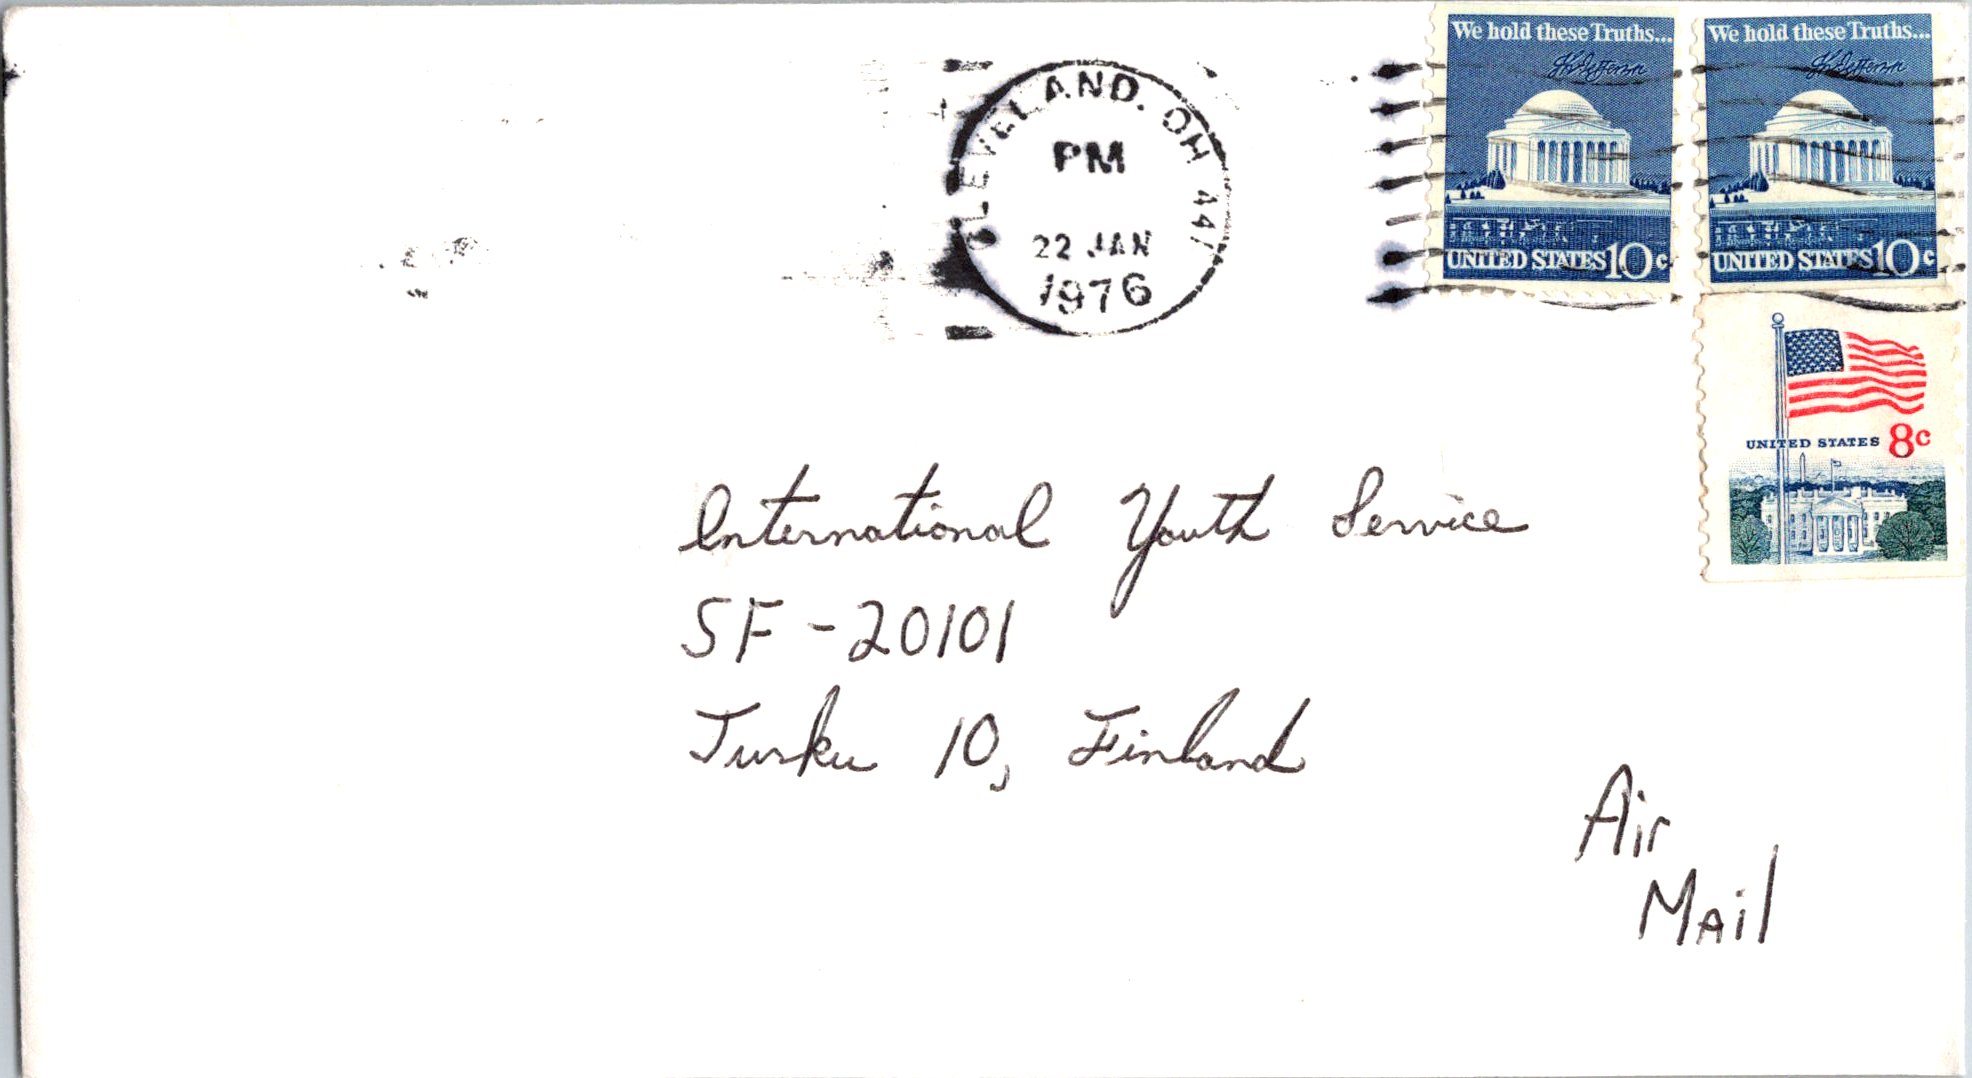 We hold these Truths...
Th Jefferson
UNITED STATES 10c
We hold these Truths...
Th Jefferson
UNITED STATES 10c
UNITED STATES 8c
CLEVELAND, OH 441
PM
22 JAN
1976
International Youth Service
SF-20101
Turku 10, Finland
Air
Mail